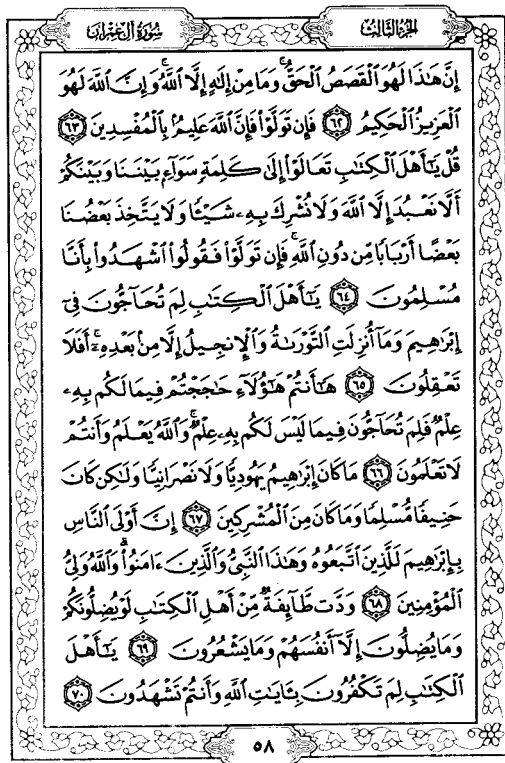 سُورَةُ آلِ عِمْرَان
الجُزءُ الثَّالِث
إِنَّ هَٰذَا لَهُوَ ٱلْقَصَصُ ٱلْحَقُّ ۚ وَمَا مِنْ إِلَٰهٍ إِلَّا ٱللَّهُ ۚ وَإِنَّ ٱللَّهَ لَهُوَ
ٱلْعَزِيزُ ٱلْحَكِيمُ ٦٢ فَإِن تَوَلَّوْا۟ فَإِنَّ ٱللَّهَ عَلِيمٌۢ بِٱلْمُفْسِدِينَ ٦٣
قُلْ يَٰٓأَهْلَ ٱلْكِتَٰبِ تَعَالَوْا۟ إِلَىٰ كَلِمَةٍۢ سَوَآءٍۭ بَيْنَنَا وَبَيْنَكُمْ
أَلَّا نَعْبُدَ إِلَّا ٱللَّهَ وَلَا نُشْرِكَ بِهِۦ شَيْـًۭٔا وَلَا يَتَّخِذَ بَعْضُنَا
بَعْضًا أَرْبَابًۭا مِّن دُونِ ٱللَّهِ ۚ فَإِن تَوَلَّوْا۟ فَقُولُوا۟ ٱشْهَدُوا۟ بِأَنَّا
مُسْلِمُونَ ٦٤ يَٰٓأَهْلَ ٱلْكِتَٰبِ لِمَ تُحَآجُّونَ فِىٓ
إِبْرَٰهِيمَ وَمَآ أُنزِلَتِ ٱلتَّوْرَىٰةُ وَٱلْإِنجِيلُ إِلَّا مِنۢ بَعْدِهِۦٓ ۚ أَفَلَا
تَعْقِلُونَ ٦٥ هَٰٓأَنتُمْ هَٰٓؤُلَآءِ حَٰجَجْتُمْ فِيمَا لَكُم بِهِۦ
عِلْمٌۭ فَلِمَ تُحَآجُّونَ فِيمَا لَيْسَ لَكُم بِهِۦ عِلْمٌۭ ۚ وَٱللَّهُ يَعْلَمُ وَأَنتُمْ
لَا تَعْلَمُونَ ٦٦ مَا كَانَ إِبْرَٰهِيمُ يَهُودِيًّۭا وَلَا نَصْرَانِيًّۭا وَلَٰكِن كَانَ
حَنِيفًۭا مُّسْلِمًۭا وَمَا كَانَ مِنَ ٱلْمُشْرِكِينَ ٦٧ إِنَّ أَوْلَى ٱلنَّاسِ
بِإِبْرَٰهِيمَ لَلَّذِينَ ٱتَّبَعُوهُ وَهَٰذَا ٱلنَّبِىُّ وَٱلَّذِينَ ءَامَنُوا۟ ۗ وَٱللَّهُ وَلِىُّ
ٱلْمُؤْمِنِينَ ٦٨ وَدَّت طَّآئِفَةٌۭ مِّنْ أَهْلِ ٱلْكِتَٰبِ لَوْ يُضِلُّونَكُمْ
وَمَا يُضِلُّونَ إِلَّآ أَنفُسَهُمْ وَمَا يَشْعُرُونَ ٦٩ يَٰٓأَهْلَ
ٱلْكِتَٰبِ لِمَ تَكْفُرُونَ بِـَٔايَٰتِ ٱللَّهِ وَأَنتُمْ تَشْهَدُونَ ٧٠
٥٨